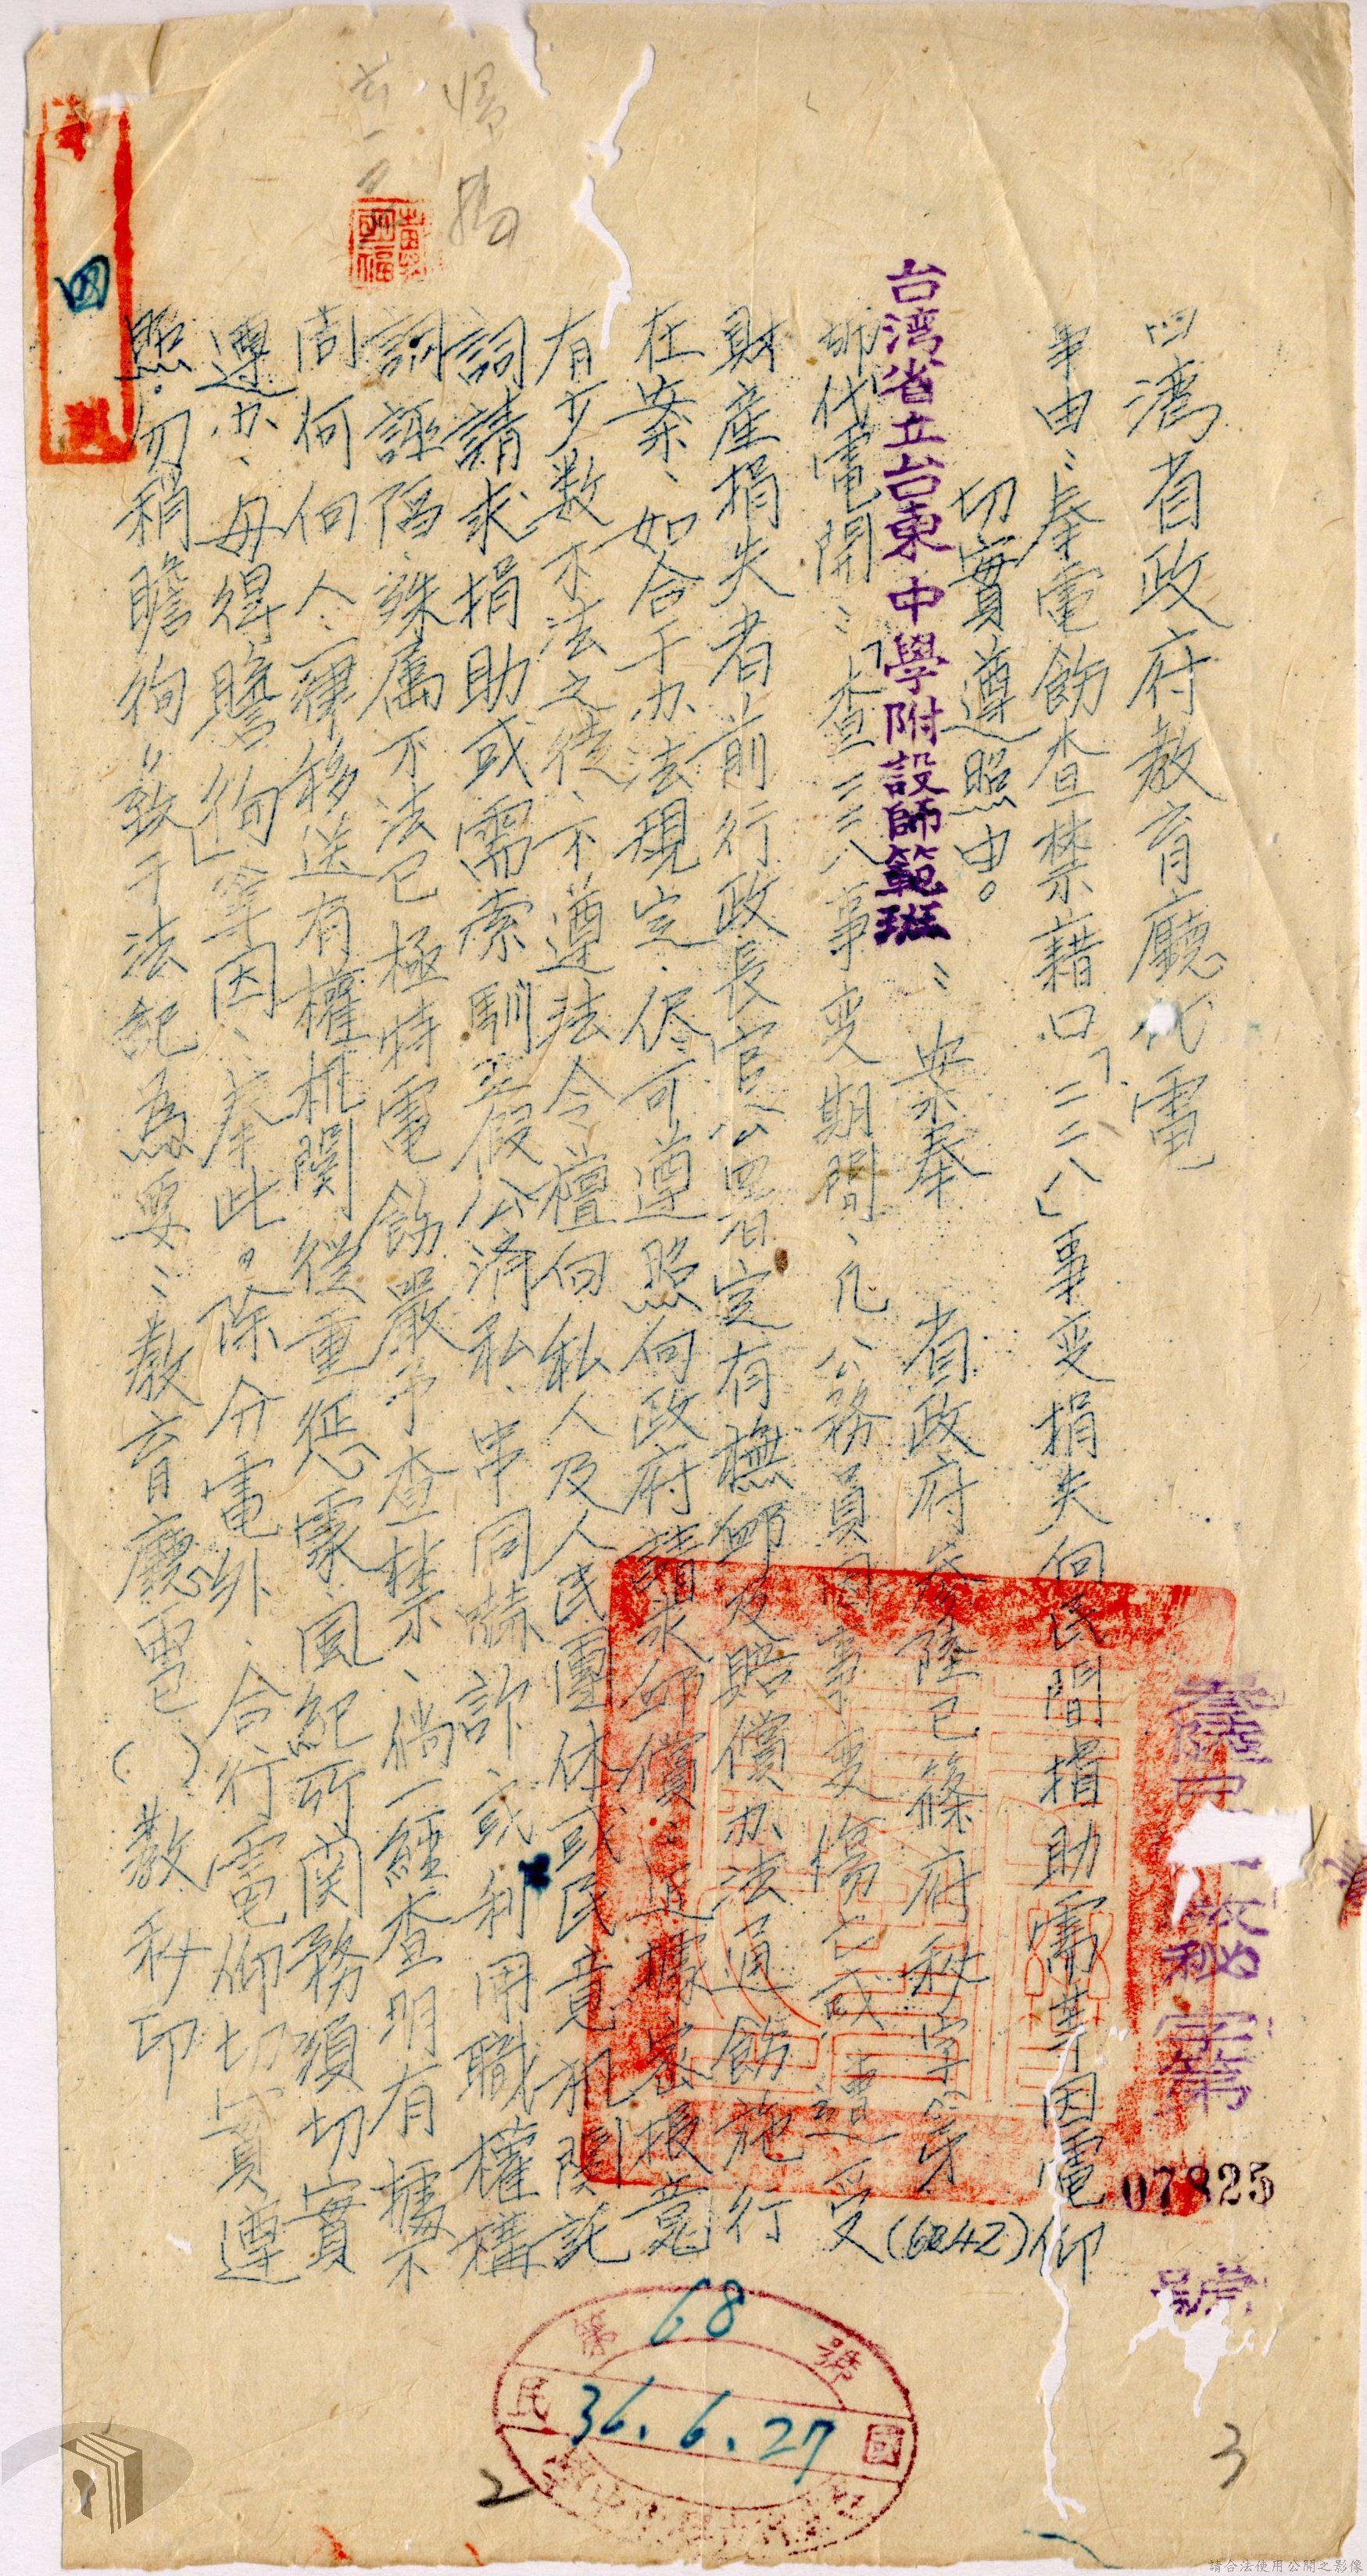 台灣省政府教育廳代電
事由：奉電飭查禁藉口「二二八」事变損失向民間捐助需索等因電仰
切實遵照由。
台湾省立台東中學附設師範班：案奉 省政府叄陸巳篠府秘字第(6042)
號代電開：「查二二八事变期間、凡公務員因事变傷亡或遭受
財產損失者前行政長官公署定有撫卹及賠償办法通飭施行
在案、如合于办法規定、侭可遵照向政府請求卹償；近據密报竟
有少数不法之徒、不遵法令擅向私人及人民團体或民意机関託
詞請求捐助或需索馴至假公濟私、串同嚇詐或利用職權構
詞誣陷、殊属不法已極特電飭嚴予查禁、倘一經查明有據不
問何人、一律移送有權机関從重惩處、風紀所関務須切實
遵办、毋得瞻徇」等因、奉此。除分電外、合行電仰切實遵
照、勿稍瞻徇致于法紀為要：教育廳電( )教秘印
秘字第 07825 號
四
第 68 號
民國 36.6.27
2
3
請合法使用公開之影像